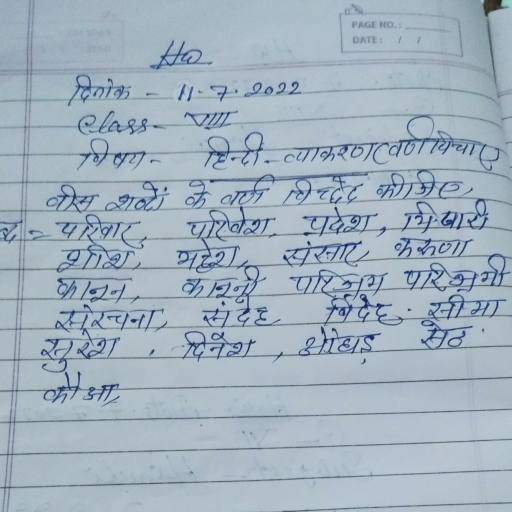 PAGE NO.:
DATE: / /
HW
दिनांक - 11.7.2022
Class - VIII
विषय - हिन्दी - व्याकरण (वर्ण विचार)
बीस शब्दों के वर्ण विच्छेद कीजिए,
= परिवार, परिवेश, प्रदेश, भिखारी
शशि, महेश, संसार, करुणा
कानून, कानूनी परिश्रम परिश्रमी
संरचना, संदेह, विदेह. सीमा
सुरेश, दिनेश, ओघड़ सेठ.
कौआ,